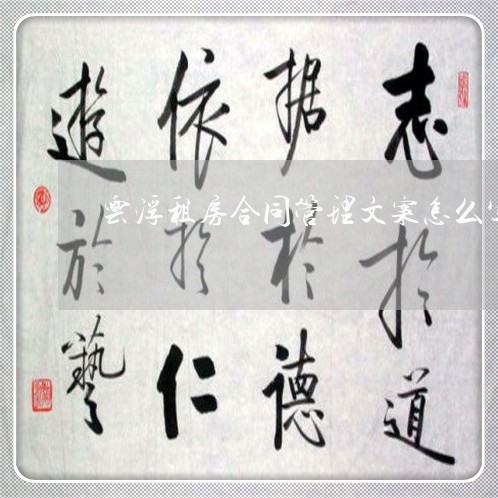 志於道
据於德
依於仁
遊於藝
雲浮租房合同管理文案怎么